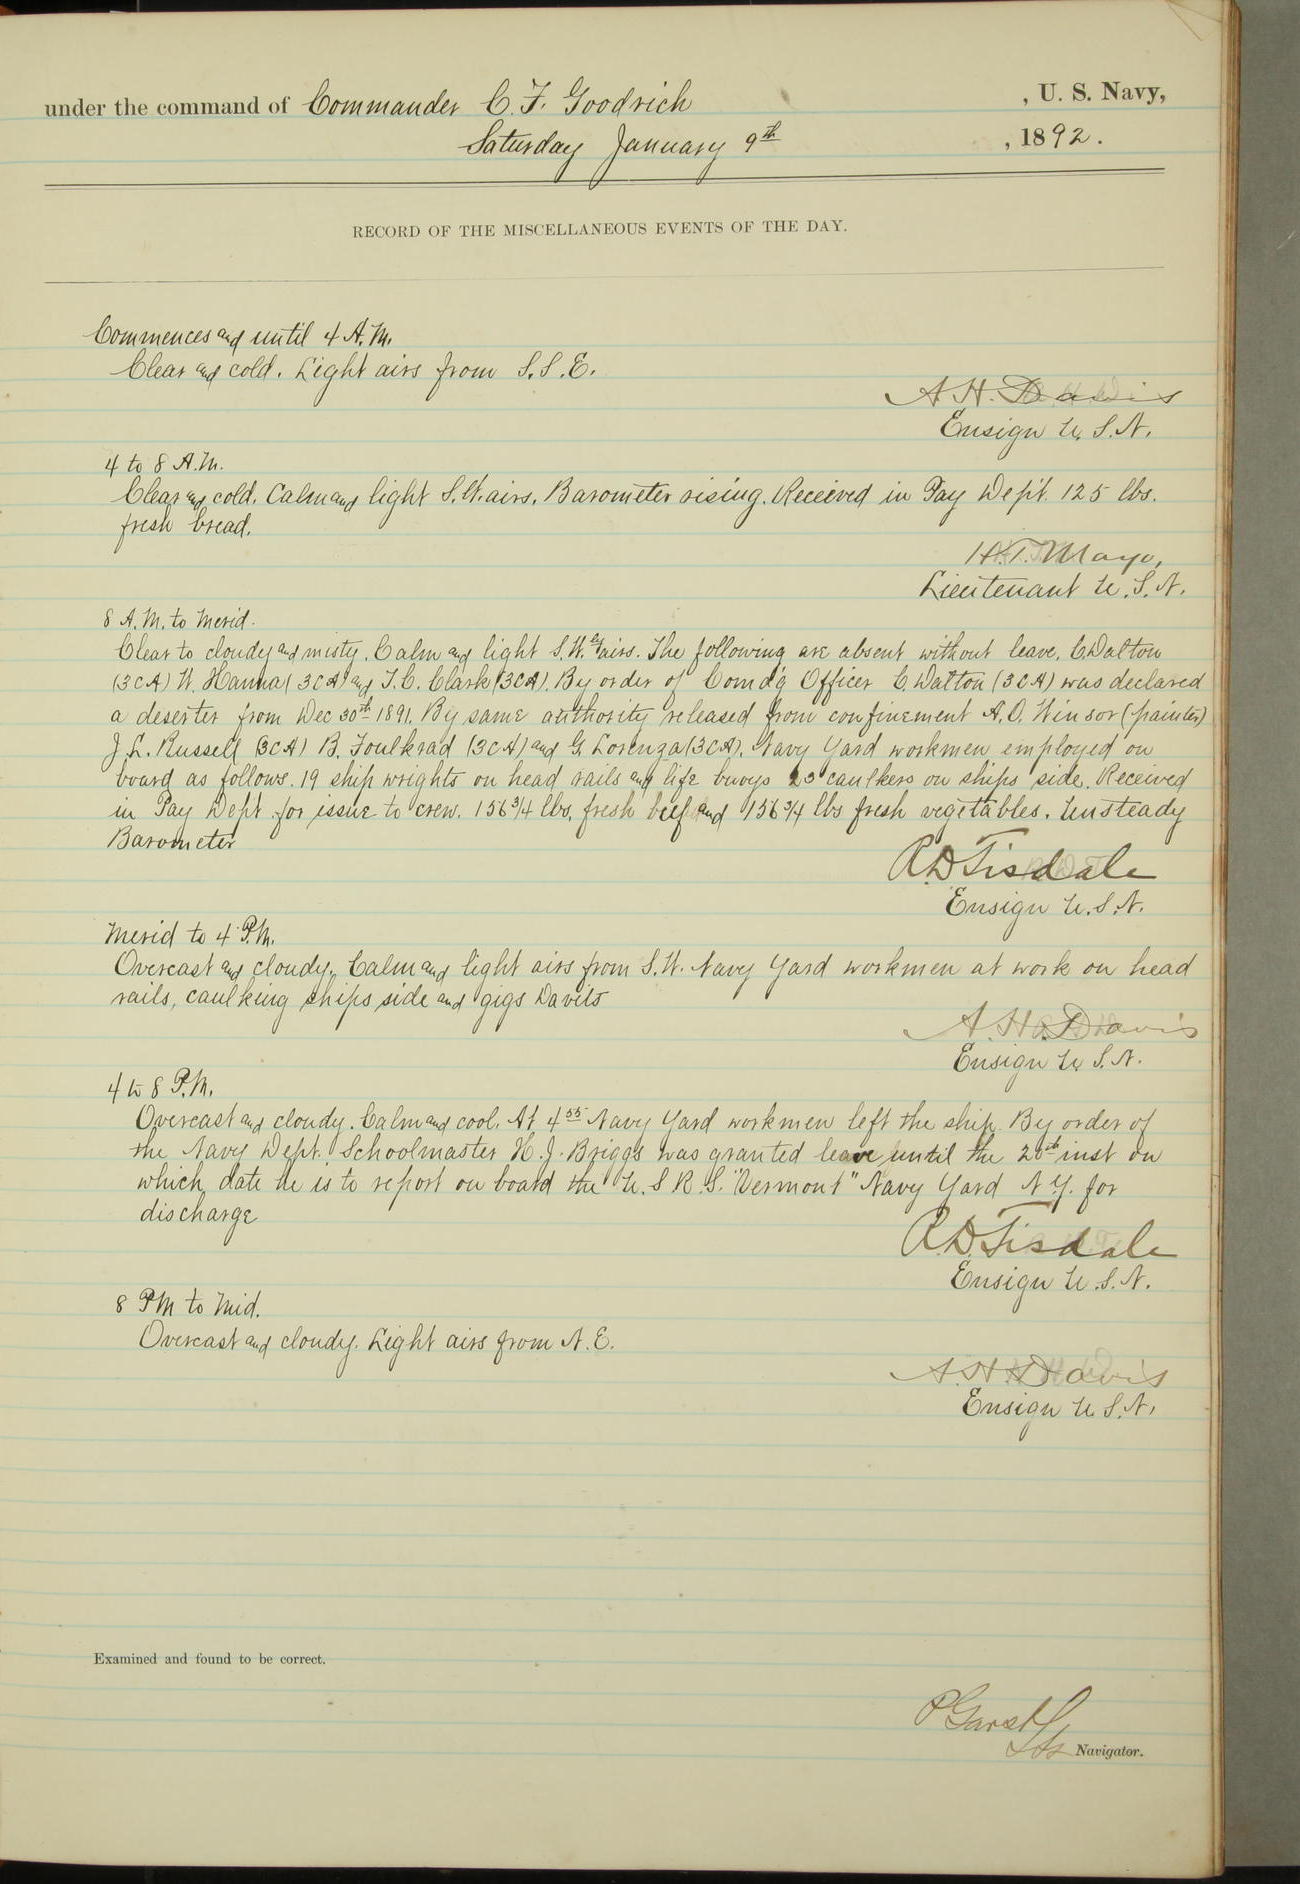 under the command of Commander C. F. Goodrich , U. S. Navy,
Saturday January 9th , 1892.
RECORD OF THE MISCELLANEOUS EVENTS OF THE DAY.
Commences and until 4 A.M.
Clear and cold. Light airs from S.S.E.
A. H. Davis
Ensign U.S.N.
4 to 8 A.M.
Clear and cold. Calm and light S.W. airs. Barometer rising. Received in Pay Dept. 125 lbs.
fresh bread.
H.T. Mayo,
Lieutenant U.S.N.
8 A.M. to Merid.
Clear to cloudy and misty. Calm and light S.W.ly airs. The following are absent without leave. C. Dalton
(3CA) W. Hanna (3CA) and T. C. Clark (3CA). By order of Comd'g Officer C. Dalton (3CA) was declared
a deserter from Dec 30th 1891. By same authority released from confinement A. O. Winsor (painter)
J. L. Russell (3CA) B. Foulkrad (3CA) and G. Lorenza (3CA). Navy Yard workmen employed on
board as follows. 19 ship wrights on head rails and life buoys 23 caulkers on ships side. Received
in Pay Dept. for issue to crew. 156 3/4 lbs. fresh beef and 156 3/4 lbs fresh vegetables. Unsteady
Barometer
R.D Tisdale
Ensign U.S.N.
Merid to 4 P.M.
Overcast and cloudy. Calm and light airs from S.W. Navy Yard workmen at work on head
rails, caulking ships side and gigs Davits
A. H. Davis
Ensign U.S.N.
4 to 8 P.M.
Overcast and cloudy. Calm and cool. At 4 55 Navy Yard workmen left the ship. By order of
the Navy Dept. Schoolmaster H. J. Briggs was granted leave until the inst on
which date he is to report on board the U. S R. S. "Vermont" Navy Yard N.Y. for
discharge
R.D. Tisdale
Ensign U.S.N.
8 PM to Mid.
Overcast and cloudy. Light airs from N.E.
A. H. Davis
Ensign U.S.N.
Examined and found to be correct.
P Garst
Lt Navigator.